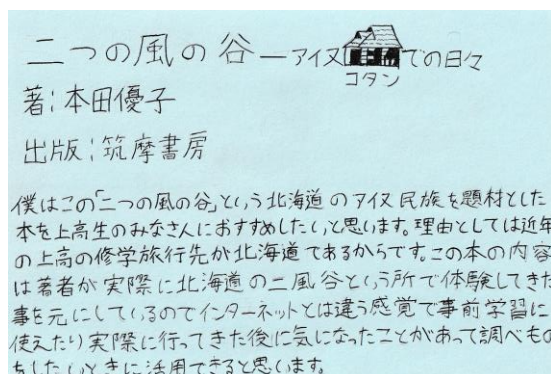 二つの風の谷―アイヌ での日々
コタン
著:本田優子
出版:筑摩書房
僕はこの「二つの風の谷」という北海道のアイヌ民族を題材とした
本を上高生のみなさんにおすすめしたいと思います。理由としては近年
の上高の修学旅行先が北海道であるからです。この本の内容
は著者が実際に北海道の二風谷という所で体験してきた
事を元にしているのでインターネットとは違う感覚で事前学習に
使えたり実際に行ってきた後に気になったことがあって調べもの
をしたいときに活用できると思います。